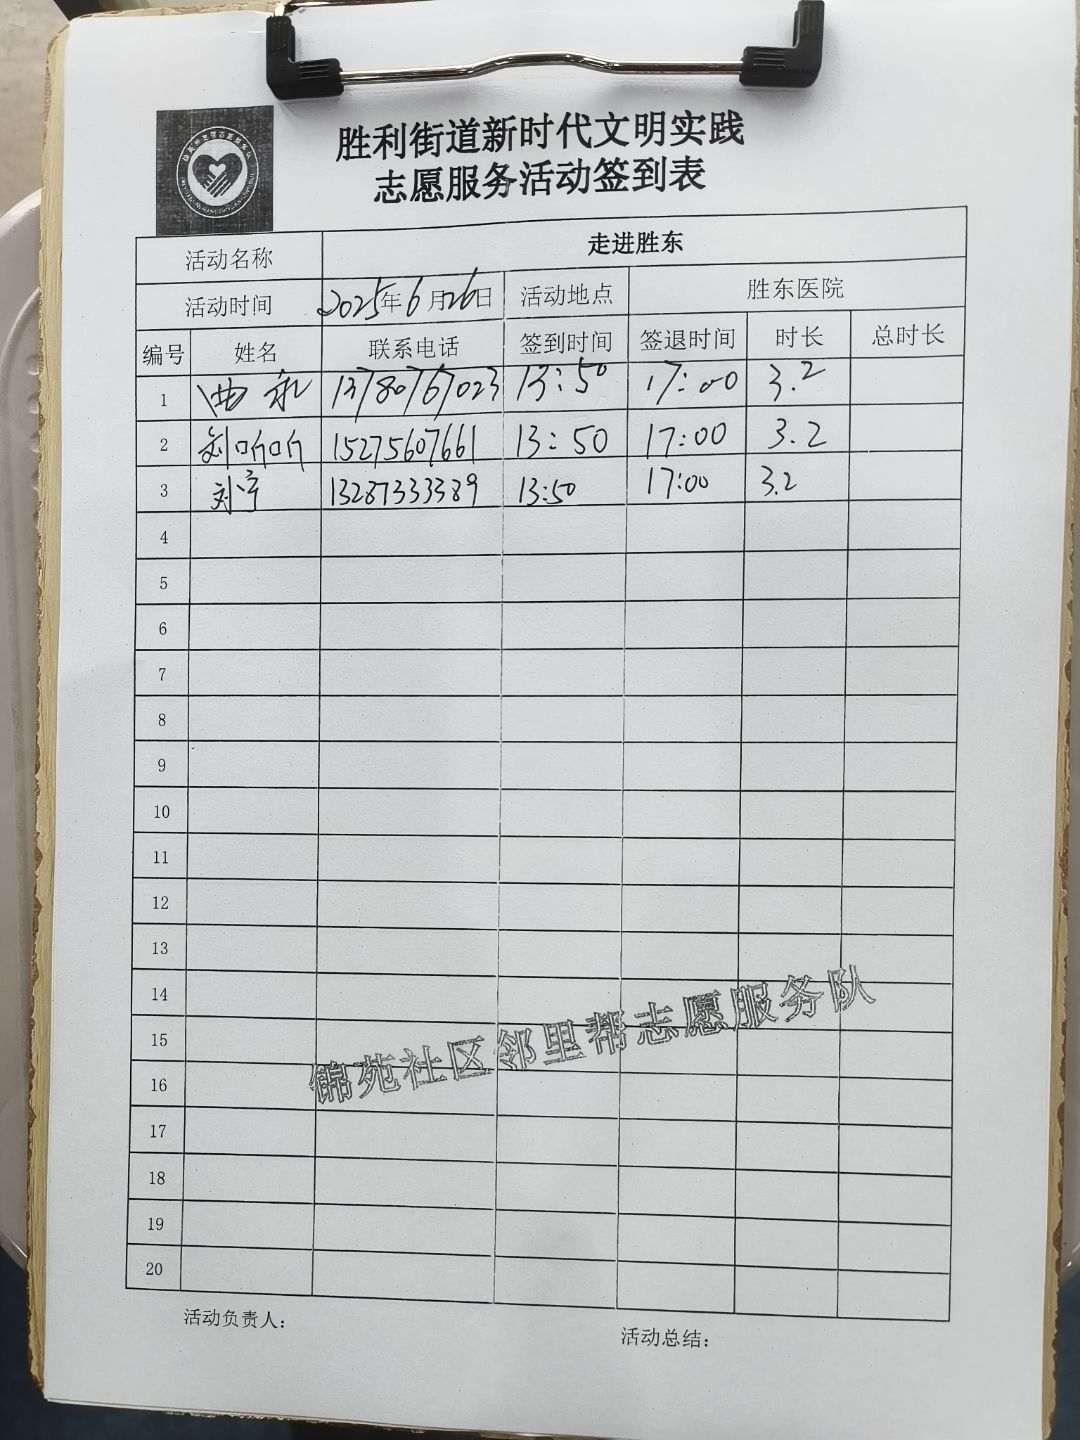 胜利街道新时代文明实践
志愿服务活动签到表
活动名称 走进胜东
活动时间 2025年6月26日 活动地点 胜东医院
编号 姓名 联系电话 签到时间 签退时间 时长 总时长
1 13780767023 13:50 17:00 3.2
2 刘听听 15275607661 13:50 17:00 3.2
3 刘宁 13287333389 13:50 17:00 3.2
4
5
6
7
8
9
10
11
12
13
14
15
16
17
18
19
20
锦苑社区邻里帮志愿服务队
活动负责人:
活动总结: